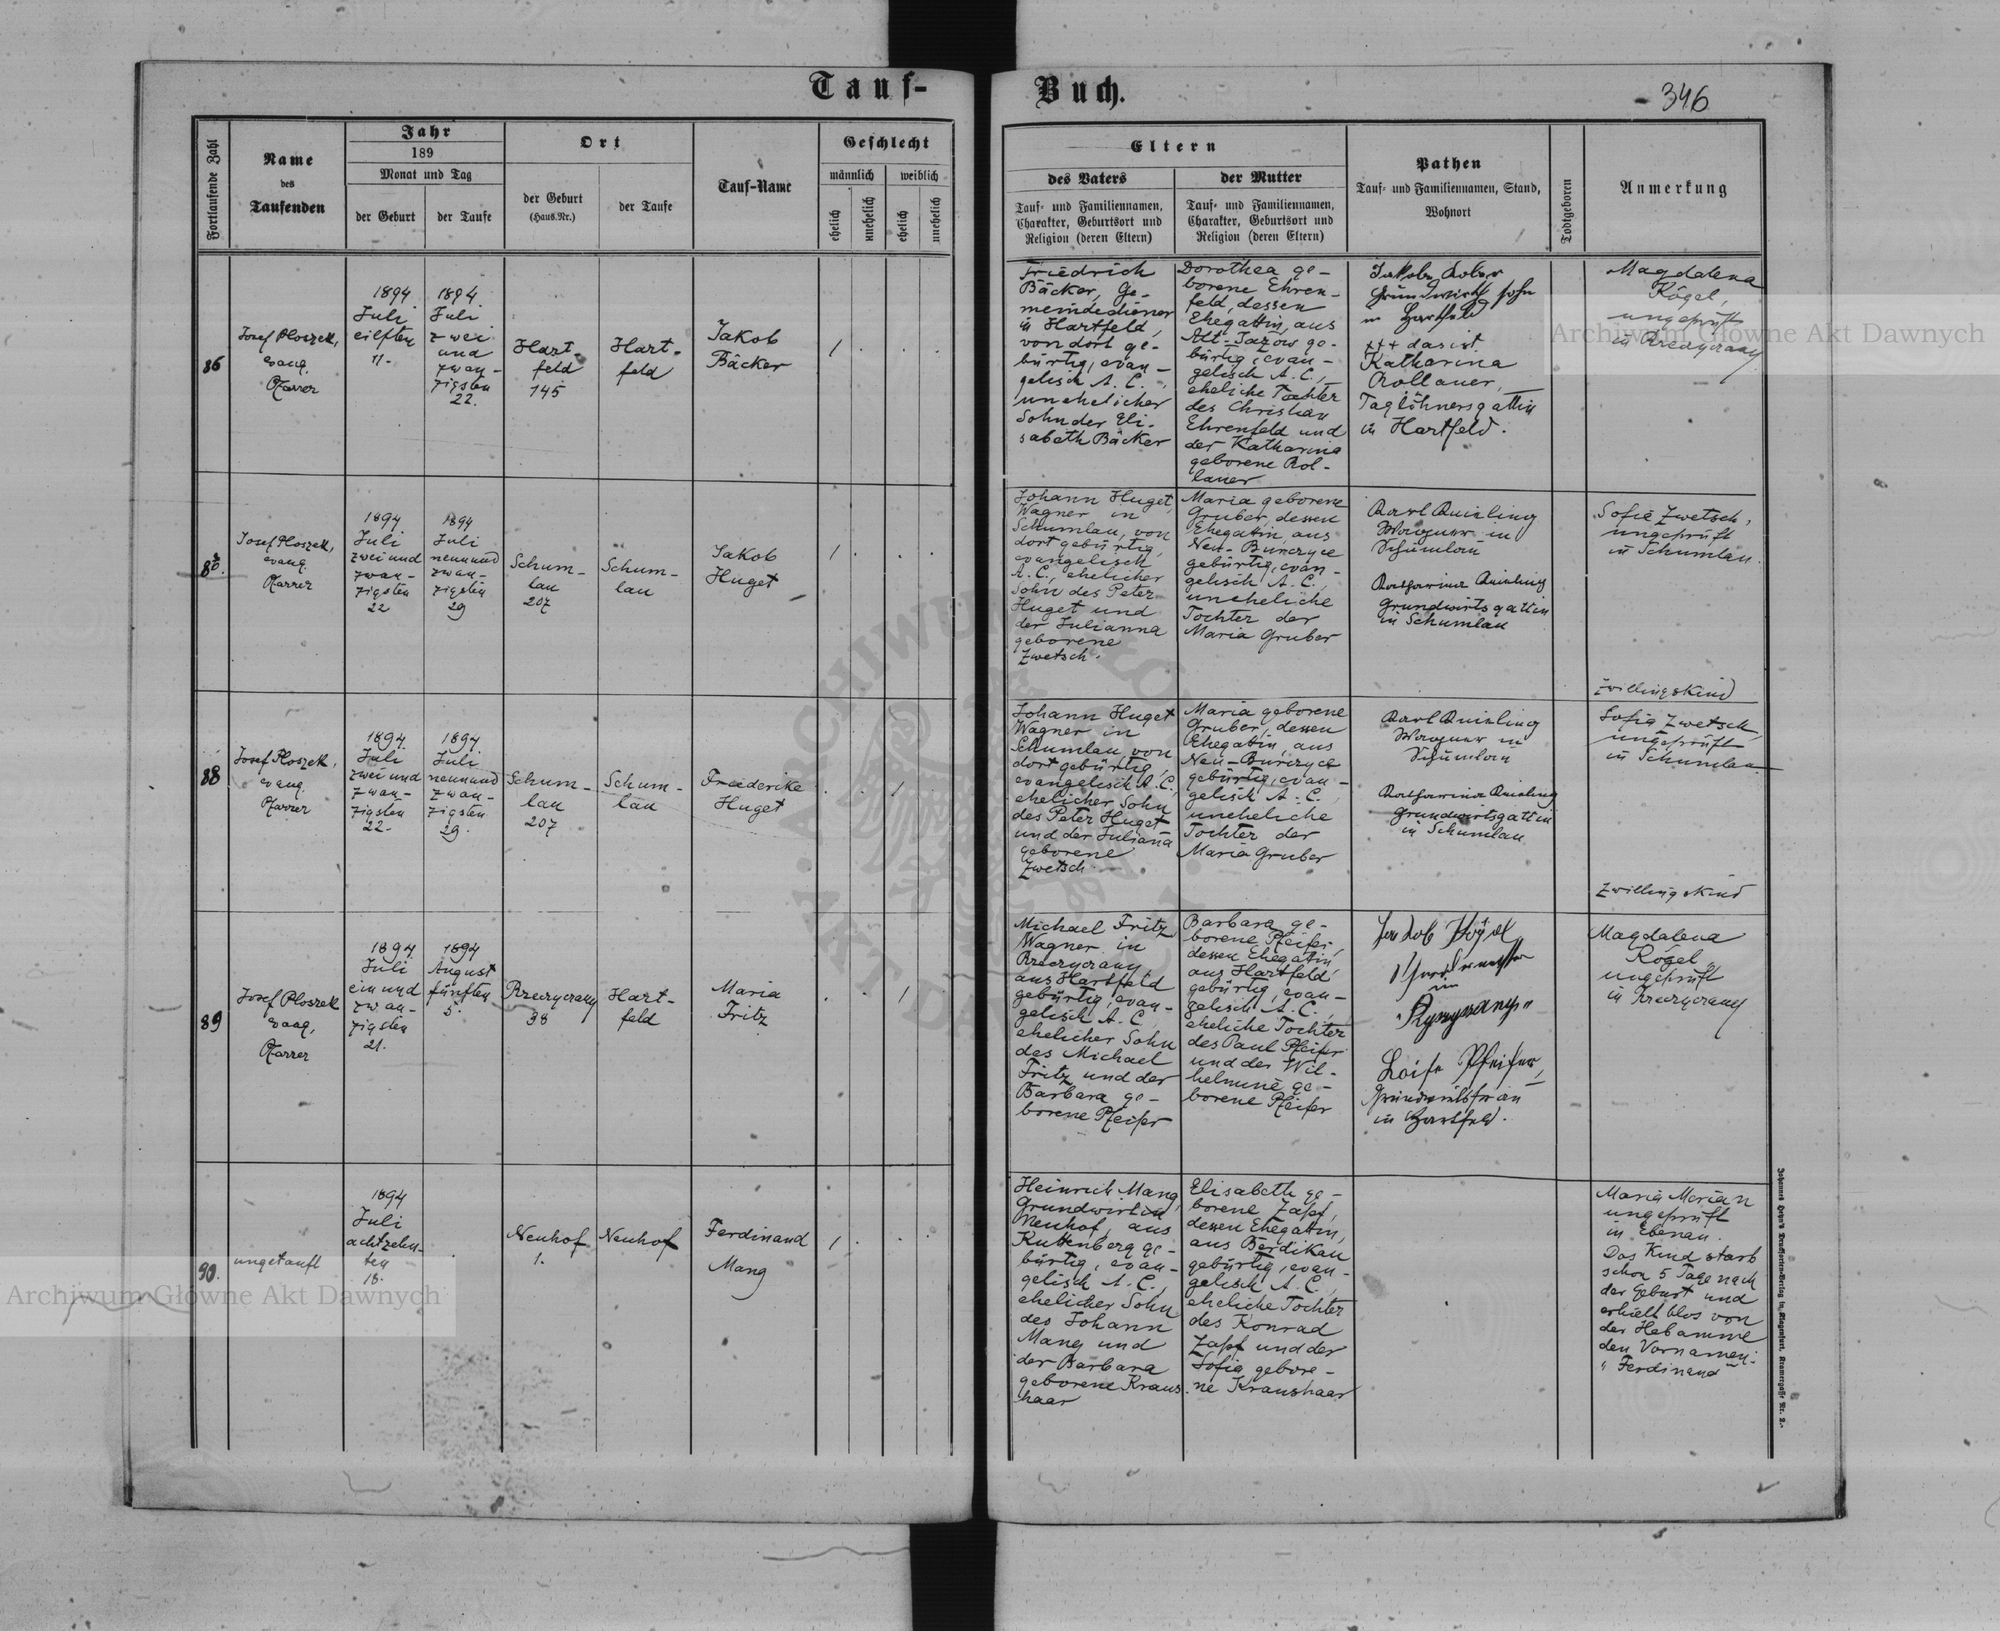 Tauf-
Buch.
346
Fortlaufende Zahl
Name
des
Taufenden
Jahr
189
Monat und Tag
der Geburt
der Taufe
Ort
der Geburt
(Haus-Nr.)
der Taufe
Tauf-Name
Geschlecht
männlich
weiblich
ehelich
unehelich
ehelich
unehelich
Eltern
des Vaters
Tauf- und Familiennamen,
Charakter, Geburtsort und
Religion (deren Eltern)
der Mutter
Tauf- und Familiennamen,
Charakter, Geburtsort und
Religion (deren Eltern)
Pathen
Tauf- und Familiennamen, Stand,
Wohnort
Todtgeboren
Anmerkung
86
Josef Ploszek,
evang.
Pfarrer
1894
Juli
eilften
11.
1894.
Juli
zwei
und
zwan-
zigsten
22.
Hart-
feld
145
Hart-
feld
Jakob
Bäcker
1 . . .
Friedrich
Bäcker, Ge-
meindediener
in Hartfeld,
von dort ge-
bürtig, evan-
gelisch A. C.,
unehelicher
Sohn der Eli-
sabeth Bäcker
Dorothea ge-
borene Ehren-
feld, dessen
Ehegattin, aus
Alt-Jazow ge-
bürtig, evan-
gelisch A. C.,
eheliche Tochter
des Christian
Ehrenfeld und
der Katharina
geborene Rol-
lauer
Grundwirths sohn
in Hartfeld
+++ das ist
Katharina
Rollauer,
Taglöhnersgattin
in Hartfeld.
Magdalena
Kögel,
ungeprüft
in Rzeczyczany
87.
Josef Ploszek,
evang.
Pfarrer
1894
Juli
zwei und
zwan-
zigsten
22
1894
Juli
neunund
zwan-
zigsten
29
Schum-
lau
207
Schum-
lau
Jakob
Huget
1 . . .
Johann Huget,
Wagner in
Schumlau, von
dort gebürtig,
evangelisch
A. C., ehelicher
Sohn des Peter
Huget und
der Julianna
geborene
Zwetsch.
Maria geborene
Gruber, dessen
Ehegattin, aus
Neu-Burczyce
gebürtig, evan-
gelisch A. C.,
uneheliche
Tochter der
Maria Gruber
Karl Kuisling
Wagner in
Schumlau
Katharina Kuisling
Grundwirtsgattin
in Schumlau
Sofie Zwetsch,
ungeprüft
in Schumlau.
Zwillingskind
88
Josef Ploszek,
evang.
Pfarrer
1894.
Juli
zwei und
zwan-
zigsten
22.
1894.
Juli
neunund
zwan-
zigsten
29.
Schum-
lau
207
Schum-
lau
Friederike
Huget
. . 1 .
Johann Huget
Wagner in
Schumlau, von
dort gebürtig,
evangelisch A. C.,
ehelicher Sohn
des Peter Huget
und der Juliana
geborene
Zwetsch
Maria geborene
Gruber, dessen
Ehegattin, aus
Neu-Burczyce
gebürtig, evan-
gelisch A. C.,
uneheliche
Tochter der
Maria Gruber
Karl Kuisling
Wagner in
Schumlau
Katharina Kuisling
Grundwirtsgattin
in Schumlau
Sofia Zwetsch,
ungeprüft
in Schumlau
Zwillingskind
89
Josef Ploszek
evang.
Pfarrer
1894.
Juli
ein und
zwan-
zigsten
21.
1894
August
fünften
5.
Rzeczyczany
38
Hart-
feld
Maria
Fritz
. . 1 .
Michael Fritz,
Wagner in
Rzeczyczany,
aus Hartfeld
gebürtig, evan-
gelisch A. C.,
ehelicher Sohn
des Michael
Fritz und der
Barbara ge-
borene Pfeifer
Barbara ge-
borene Pfeifer,
dessen Ehegattin,
aus Hartfeld
gebürtig, evan-
gelisch A. C.,
eheliche Tochter
des Paul Pfeifer
und der Wil-
helmine ge-
borene Pfeifer
Jakob Kögel
in
Loise Pfeifer,
Grundwirtsfrau
in Hartfeld.
Magdalena
Kögel,
ungeprüft
in Rzeczyczany
90.
ungetauft
1894
Juli
achtzehn-
ten
18.
Neuhof
1.
Neuhof
Ferdinand
Mang
1 . . .
Heinrich Mang,
Grundwirt in
Neuhof, aus
Kuttenberg ge-
bürtig, evan-
gelisch A. C.,
ehelicher Sohn
des Johann
Mang und
der Barbara
geborene Kraus
haar
Elisabeth ge-
borene Zapf,
dessen Ehegattin,
aus Berdikau
gebürtig, evan-
gelisch A. C.,
eheliche Tochter
des Konrad
Zapf und der
Sofia gebore-
ne Kraushaar
Maria Merian
ungeprüft
in Ebenau.
Das Kind starb
schon 5 Tage nach
der Geburt und
erhielt blos von
der Hebamme
den Vornamen:
"Ferdinand"
Archiwum Główne Akt Dawnych
Archiwum Główne Akt Dawnych